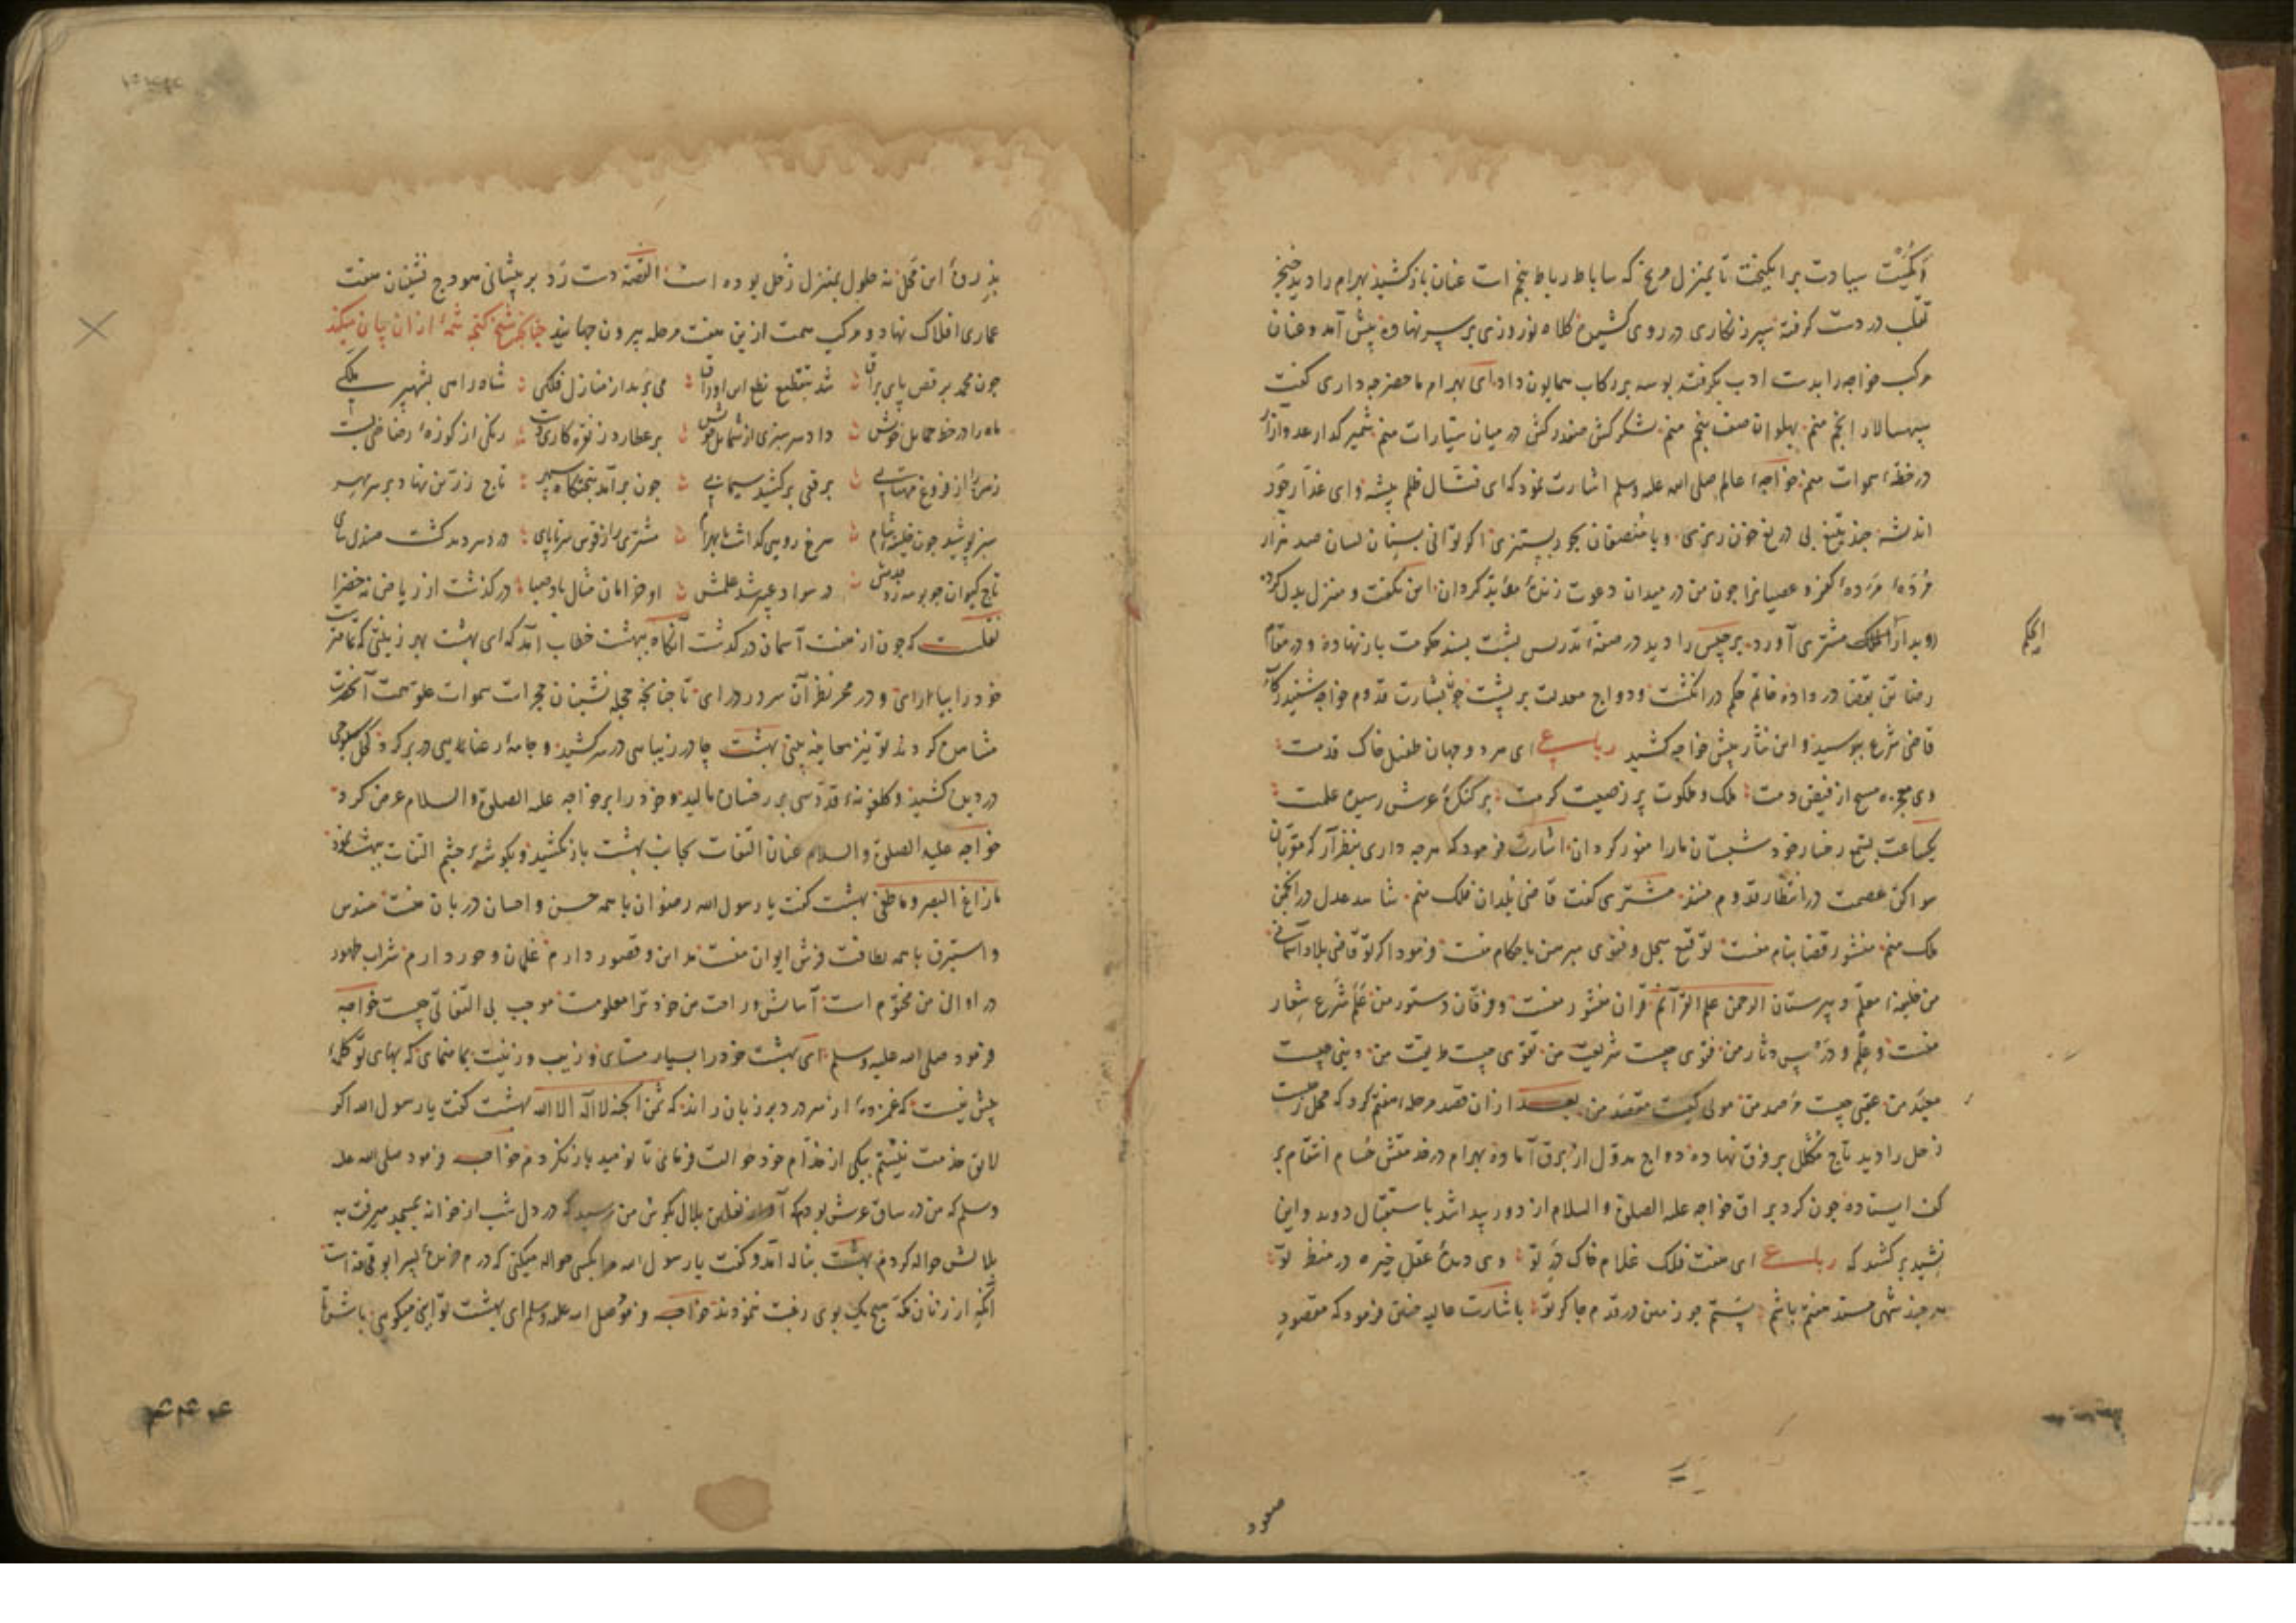 سیادت برانگیخت تا بمنزل مریخ که ساباط رباط پنجم است عنان باز کشید بهرام را دید خنجر
در دست گرفته سپر زنگاری در روی کشیده کلاه نوروزی بر سر نهاده پیش آمد و عنان
مرکب خواجه را بدست ادب بگرفت بوسه بر رکاب همایون داد ای بهرام ما حضر چه داری گفت
سپهسالار انجم منم پهلوان صف پنجم منم لشکرکش صفدرکش در میان سیارات منم
در خطهٔ سموات منم خواجهٔ عالم صلی الله علیه وسلم اشارت نمود که ای قتال ظلم پیشه و ای غدار جور
اندیشه چند بتیغ بی دریغ خون ریزی و با منصفان بجور بستیزی اگر توانی بسنان لسان صد هزار
مردهٔ کفر و عصیانرا چون من در میدان دعوت زنده گردان این بگفت و منزل بدل کرد
رو بدار الملک مشتری آورد برجیس را دید در صفهٔ تدریس پشت بمسند حکومت باز نهاده و در مقام
الحکم
رضا تن بقضا در داده خاتم حکم در انگشت و دواج معدلت بر پشت چون بشارت قدوم خواجه شنید رکاب
قاضی شرع ببوسید و این نثار پیش خواجه کشید رباعی ای هر دو جهان طفیل خاک قدمت
وی معجزه مسیح از فیض دمت ملک و ملکوت پر ز صیت کرمت بر کنگرهٔ عرش رسیده علمت
یکساعت بشمع رخسار خود شبستان ما را منور گردان اشارت فرمود که هرچه داری بنظر آر که مقربان
سواکن عصمت در انتظار قدوم منند مشتری گفت قاضی بلدان فلک منم شاهد عدل در انجمن
ملک منم منشور قضا بنام منست توقیع سجل و فتوی مبرهن باحکام منست فرمود اگر تو قاضی بلاد آسمانی
من خلیفهٔ معلم دبیرستان الرحمن علم القرآنم قرآن منشور منست و فرقان دستور من علم شرع شعار
منست و علم و درس دثار من فتوی چیست شریعت من تقوی چیست طریقت من دنیی چیست
من عقبی چیست مرصد من مولی کیست مقصد من بعد از آن قصد مرحلهٔ هفتم کرد که محل زحلست
زحل را دید تاج مکلل بر فرق نهاده دواج از برق آماده بهرام در خدمتش حسام انتقام بر
کف ایستاده چون گرد براق خواجه علیه الصلوة والسلام از دور پیدا شد باستقبال دوید و این
نشید بر کشید که رباعی ای هفت فلک غلام خاک در تو وی دیدهٔ عقل خیره در منظر تو
هرچند شهی مسند هفتم باشم پستم چو زمین در قدم چاکر تو باشارت عالیه فرمود که مقصود
صعود
بذروهٔ این محل نه حلول بمنزل زحل بوده است القصه دست رد بر پیشانی هودج نشینان هفت
عماری افلاک نهاد و مرکب همت ازین هفت مرحله بیرون جهانید چنانکه شیخ گنجه شمهٔ از آن بیان میکند
چون محمد برقص پای براق شد بتقطیع نطع این اوراق می برید از منازل فلکی شاه راهی بشهپر ملکی
ماه را در خط حمایل خویش داد سرسبزی از شمایل خویش بر عطارد ز نقره کاری دست رنگی از کوزهٔ رصاصی بست
زهره را از فروغ مهتابی برقعی بر کشید سیمابی چون برآمد بتختگاه سپهر تاج زرین نهاد بر سر مهر
سبز پوشید چون خلیفهٔ شام سرخ رویی گذاشت بر بهرام مشتری را ز فرق سر تا پای درد سر دید گشت صندل سای
تاج کیوان چو بوسه زد قدمش در سواد عبیر شد علمش او خرامان مثال باد صبا در گذشت از ریاض نه خضرا
نقلست که چون از هفت آسمان در گذشت آنگاه ببهشت خطاب آمد که ای بهشت بهر زینتی که تمامترست
خود را بیارای و در محر نظر آن سرور در آی تا چنانچه حجله نشینان حجرات سموات علو همت آنحضرت
مشاهده کردند تو نیز معاینه ببینی بهشت چادر زیبایی در سر کشید و جامهٔ رعنایی در بر کرد
در دیده کشید و گلغونهٔ قدوسی بر رخسار مالید و خود را بر خواجه علیه الصلوة والسلام عرض کرد
خواجه علیه الصلوة والسلام عنان التفات بجانب بهشت باز نکشید و بگوشهٔ چشم التفات ببهشت ننمود
ما زاغ البصر و ما طغی بهشت گفت یا رسول الله رضوان با همه حسن و احسان دربان منست سندس
و استبرق با همه لطافت فرش ایوان منست مداین و قصور دارم غلمان و حور دارم شراب طهور
در اوانی من مختوم است آسایش و راحت من خود ترا معلومست موجب بی التفاتی چیست خواجه
فرمود صلی الله علیه وسلم ای بهشت خود را بسیار مستای و زیب و زینت بما منمای که بهای تو کلمهٔ
بیش نیست که غمزدهٔ از سر درد بر زبان راند که ثمن الجنة لا اله الا الله بهشت گفت یا رسول الله اگر
لایق خدمت نیستم بیکی از خدام خود حوالت فرمای تا نومید باز نگردم خواجه فرمود صلی الله علیه
وسلم که من در ساق عرش بودم که آواز نعلین بلال بگوش من رسید که در دل شب از خانه بمسجد میرفت به
بلالش حواله کردم بهشت بناله آمد و گفت یا رسول الله مرا بکسی حواله میکنی که درم خریدهٔ پسر ابو قحافه است
آنکه از زنان مکه هیچ یک بوی رغبت ننمودند خواجه فرمود صلی الله علیه وسلم ای بهشت تو این میگویی باش تا
۴۴۴